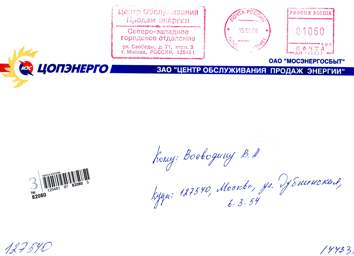 Центр Обслуживания
Продаж энергии
Северо-западное
городское отделение
ул. Свободы, д. 71, корп. 3
г. Москва, РОССИЯ, 125481
ПОЧТА РОССИИ
РОССИЯ
01060
ЦОПЭНЕРГО
ОАО "МОСЭНЕРГОСБЫТ"
ЗАО "ЦЕНТР ОБСЛУЖИВАНИЯ ПРОДАЖ ЭНЕРГИИ"
Кому: Воеводину В. А
Куда: 127540, Москва, ул. Дубнинская,
6-3-54
3
82080
127540